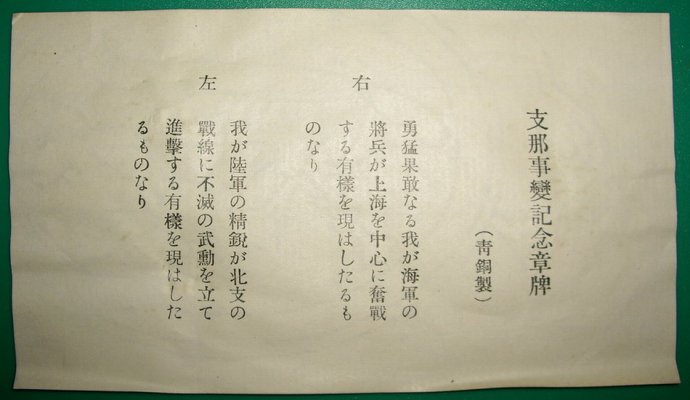 支那事變記念章牌
（靑銅製）
右
勇猛果敢なる我が海軍の
將兵が上海を中心に奮戰
する有樣を現はしたるも
のなり
左
我が陸軍の精銳が北支の
戰線に不滅の武勳を立て
進擊する有樣を現はした
るものなり